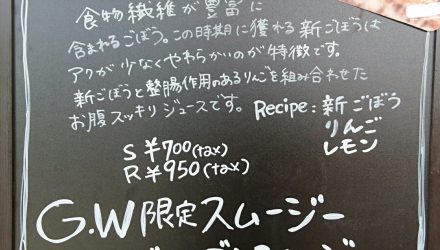 食物繊維が豊富に
含まれるごぼう。この時期に獲れる新ごぼうは
アクが少なくやわらかいのが特徴です。
新ごぼうと整腸作用のあるりんごを組み合わせた
お腹スッキリジュースです。
Recipe:新ごぼう
りんご
レモン
S ¥700(tax)
R ¥950(tax)
G.W限定スムージー